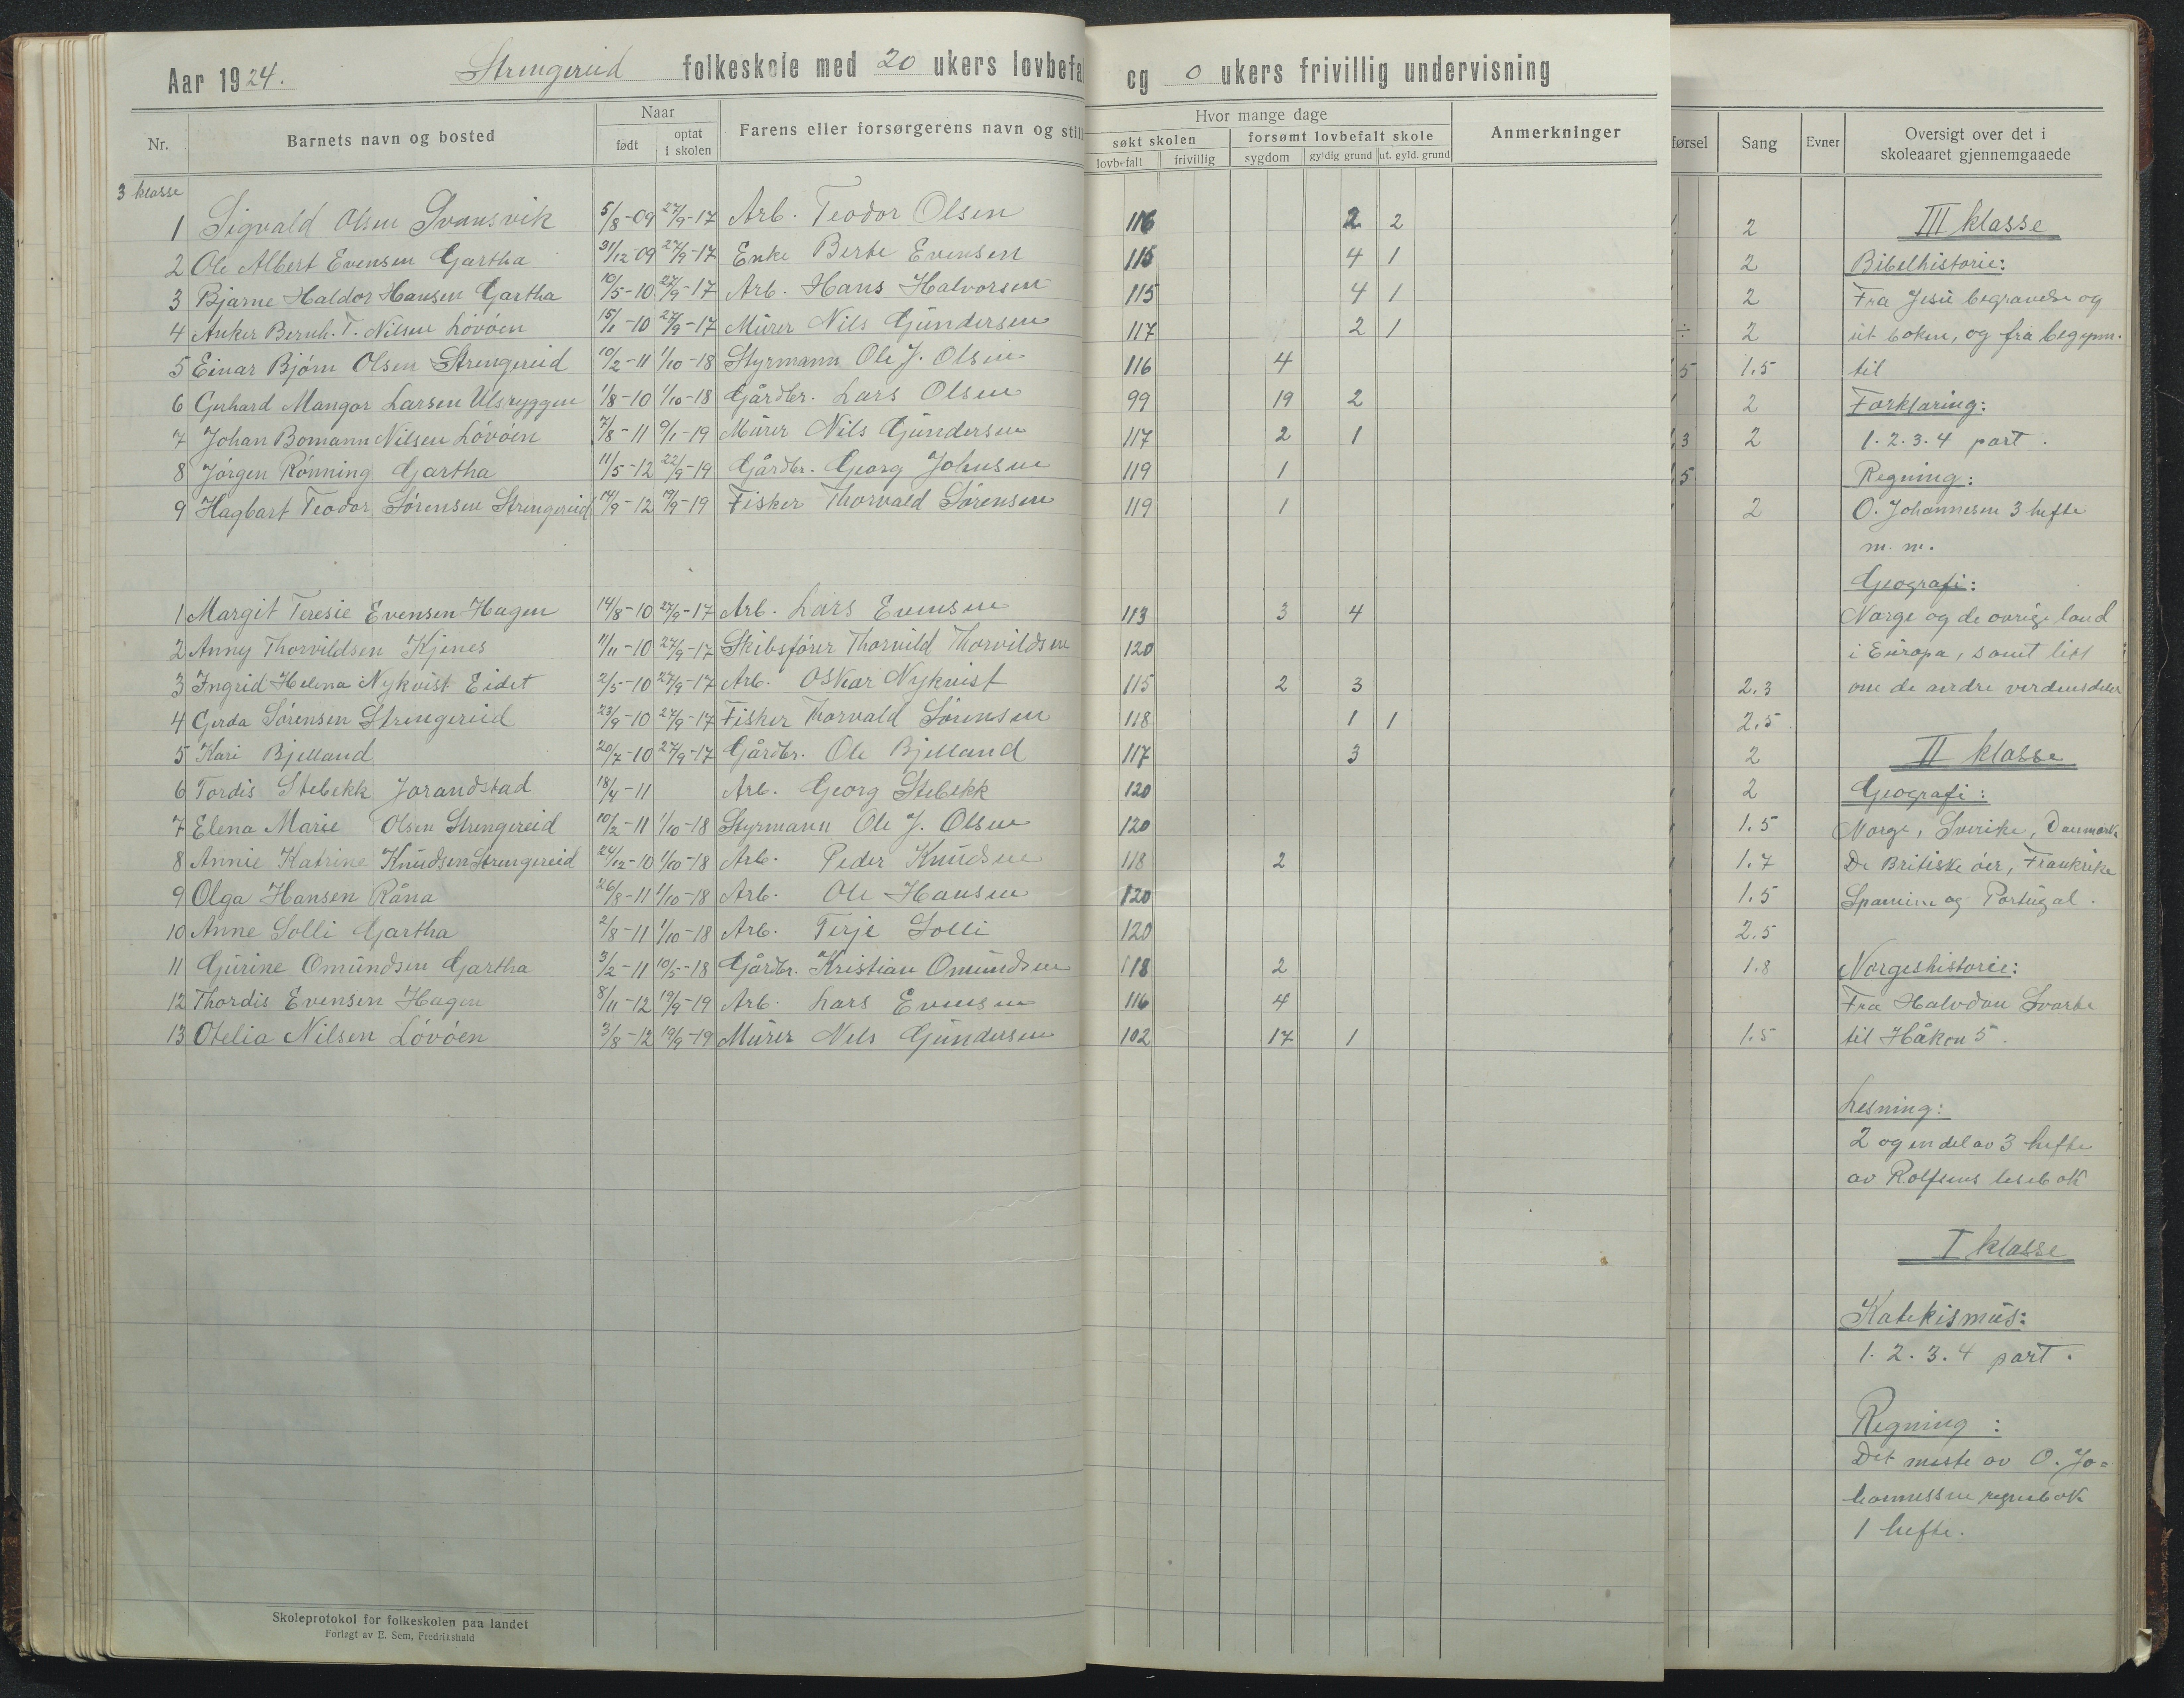 Aar 1924. Strengereid folkeskole med 20 ukers lovbefa
og 0 ukers frivillig undervisning
Nr. Barnets navn og bosted Naar født optat i skolen Farens eller forsørgerens navn og still
Hvor mange dage
søkt skolen forsømt lovbefalt skole Anmerkninger
lovbefalt frivillig sygdom gyldig grund ut. gyld. grund
3 klasse
1 Sigvald Olsen Svansvik 5/8-09 27/9-17 Arb. Teodor Olsen 116 2 2
2 Ole Albert Evensen Gartha 31/12 09 27/9-17 Enke Berte Evensen 115 4 1
3 Bjarne Haldor Hansen Gartha 10/5-10 27/9-17 Arb. Hans Halvorsen 115 4 1
4 Anker Bernh. T. Nilsen Lövöen 15/1-10 27/9-17 Mürer Nils Gündersen 117 2 1
5 Einar Bjórn Olsen Strengereid 10/2-11 1/10-18 Styrmann Ole J. Olsen 116 4
6 Gerhard Mangor Larsen Ulsryggen 1/8-10 1/10-18 Gårdbr. Lars Olsen 99 19 2
7 Johan Bomann Nilsen Lövöen 7/8-11 9/1-19 Mürer Nils Gündersen 117 2 1
8 Jórgen Rónning Gartha 11/5-12 22/9-19 Gårdbr. Georg Johnsen 119 1
9 Hagbart Teodor Sórensen Strengereid 14/9-12 19/9-19 Fisker Thorvald Sórensen 119 1
1 Margit Teresie Evensen Hagen 14/8-10 27/9-17 Arb. Lars Evensen 113 3 4
2 Anny Thorvildsen Kjenes 11/11-10 27/9-17 Skibsfórer Thorvild Thorvildsen 120
3 Ingrid Helena Nykvist Eidet 2/5-10 27/9-17 Arb. Oskar Nykvist 115 2 3
4 Gerda Sórensen Strengereid 23/9-10 27/9-17 Fisker Thorvald Sórensen 118 1 1
5 Kari Bjelland 20/7-10 27/9-17 Gårdbr. Ole Bjelland 117 3
6 Tordis Stebekk Jorandstad 18/4-11 Arb. Georg Stebekk 120
7 Elena Marie Olsen Strengereid 10/2-11 1/10-18 Styrmann Ole J. Olsen 120
8 Annie Katrine Knüdsen Strengereid 24/12-10 1/10-18 Arb. Peder Knüdsen 118 2
9 Olga Hansen Råna 26/8-11 1/10-18 Arb. Ole Hansen 120
10 Anne Solli Gartha 2/8-11 1/10-18 Arb. Terje Solli 120
11 Gürine Omündsen Gartha 3/2-11 10/5-18 Gårdbr. Kristian Omündsen 118 2
12 Thordis Evensen Hagen 8/11-12 19/9-19 Arb. Lars Evensen 116 4
13 Otelia Nilsen Lövöen 3/8-12 19/9-19 Mürer Nils Gündersen 102 17 1
Skoleprotokol for folkeskolen paa landet
Forlagt av E. Sem, Fredrikshald
førsel Sang Evner Oversigt over det i
skoleaaret gjennemgaaede
2 III klasse
2 Bibelhistorie:
2 Fra Jesü begravelse og
÷ 2 üt boken, og fra begynn.
5 1.5 til
2 Forklaring:
3 2 1. 2. 3. 4 part.
5 Regning:
2 O. Johannesen 3 hefte
m. m.
Geografi:
Norge og de óvrige land
i Eüropa, samt litt
2.3 om de andre verdensdeler
2.5
2 II klasse
2 Geografi:
1.5 Norge, Sverike, Danmark
1.7 De Britiske óer, Frankrike
1.5 Spanien og Portügal.
2.5
1.8 Norgeshistorie:
Fra Halvdan Svarte
1.5 til Håkon 5.
Lesning:
2 og en del av 3 hefte
av Rolfsens lesebok
I klasse
Katekismüs:
1. 2. 3. 4 part.
Regning:
Det meste av O. Jo=
hannessen regnebok
1 hefte.